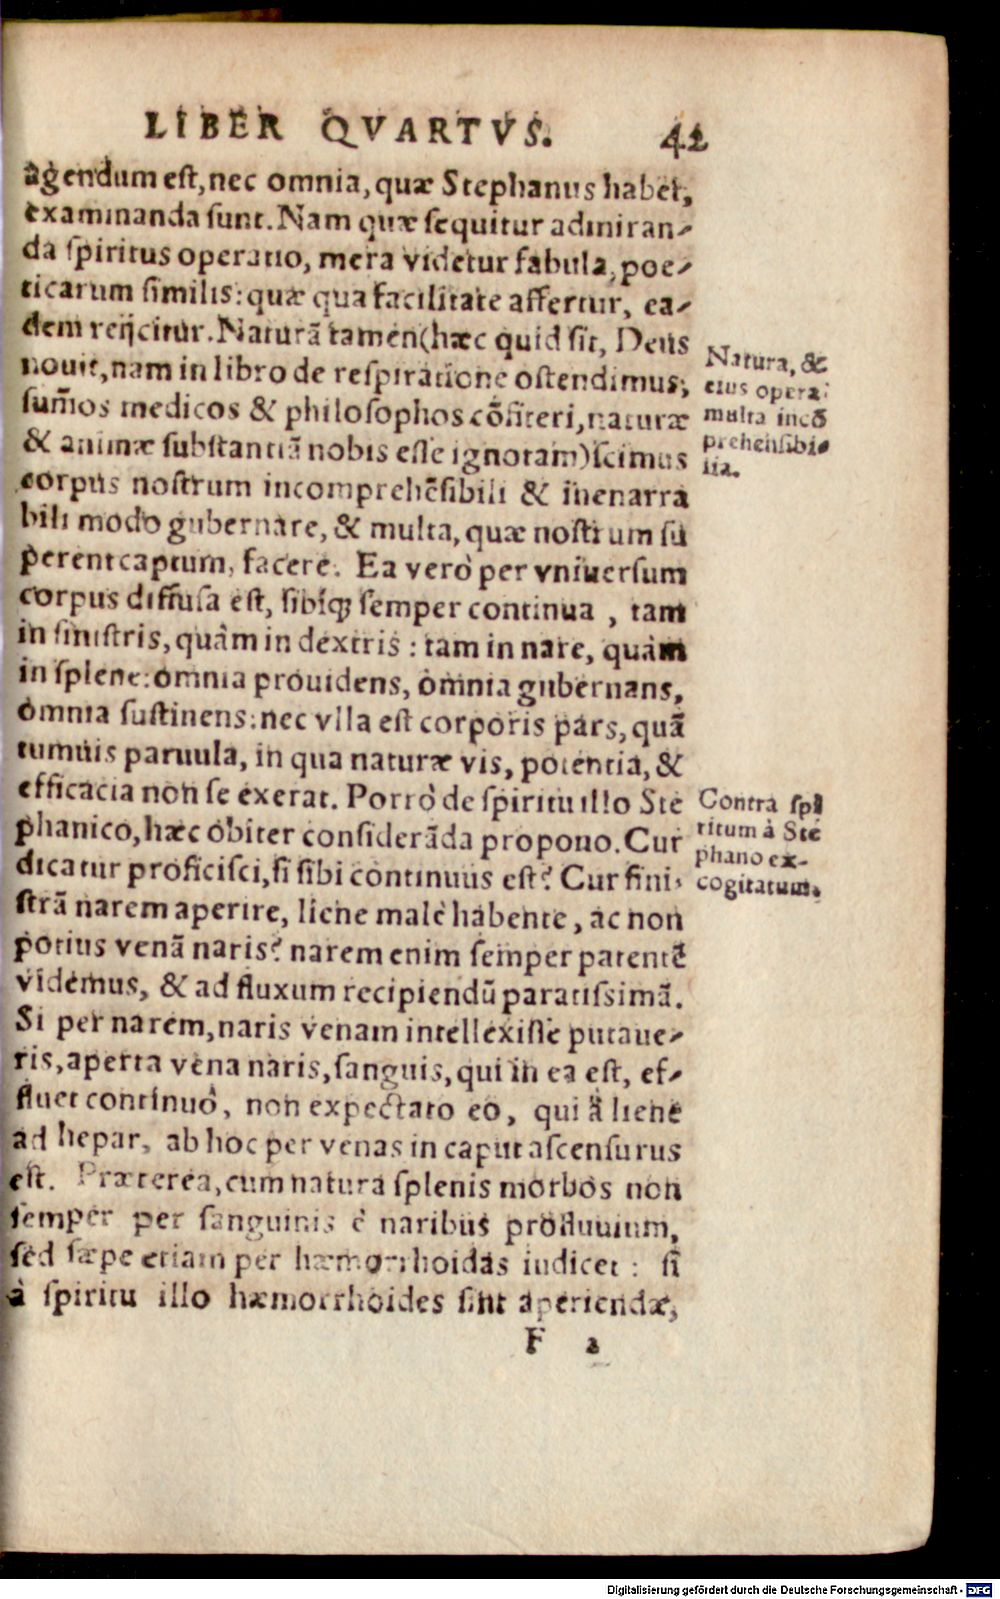 LIBER QVARTVS. 42
agendum est, nec omnia, quæ Stephanus habet,
examinanda sunt. Nam quæ sequitur admiran-
da spiritus operatio, mera videtur fabula, poe-
ticarum similis: quæ qua facilitate affertur, ea-
dem reijcitur. Naturā tamen (hæc quid sit, Deus
nouit, nam in libro de respiratione ostendimus,
sum̃os medicos & philosophos cōfiteri, naturæ
& animæ substantiā nobis esse ignotam) scimus
corpus nostrum incomprehēsibili & inenarra
bili modo gubernare, & multa, quæ nostrum su
perent captum, facere. Ea verò per vniuersum
corpus diffusa est, sibíq; semper continua, tam
in sinistris, quàm in dextris: tam in nare, quàm
in splene: omnia prouidens, omnia gubernans,
omnia sustinens: nec vlla est corporis pars, quā
tumuis paruula, in qua naturæ vis, potentia, &
efficacia non se exerat. Porrò de spiritu illo Ste
phanico, hæc obiter considerāda propono. Cur
dicatur proficisci, si sibi continuus est? Cur sini-
strā narem aperire, liene malè habente, ac non
potius venā naris? narem enim semper patentē
videmus, & ad fluxum recipiendū paratissimā.
Si per narem, naris venam intellexisse putaue-
ris, aperta vena naris, sanguis, qui in ea est, ef-
fluet continuò, non expectato eo, qui à liene
ad hepar, ab hoc per venas in caput ascensurus
est. Præterea, cum natura splenis morbos non
semper per sanguinis è naribus profluuium,
sed sæpe etiam per hæmorrhoidas iudicet: si
à spiritu illo hæmorrhoides sint aperiendæ,
F 2
Natura, &
eius opera
multa incō
prehensibi-
lia.
Contra spi
ritum à Ste
phano ex-
cogitatum.
Digitalisierung gefördert durch die Deutsche Forschungsgemeinschaft - DFG